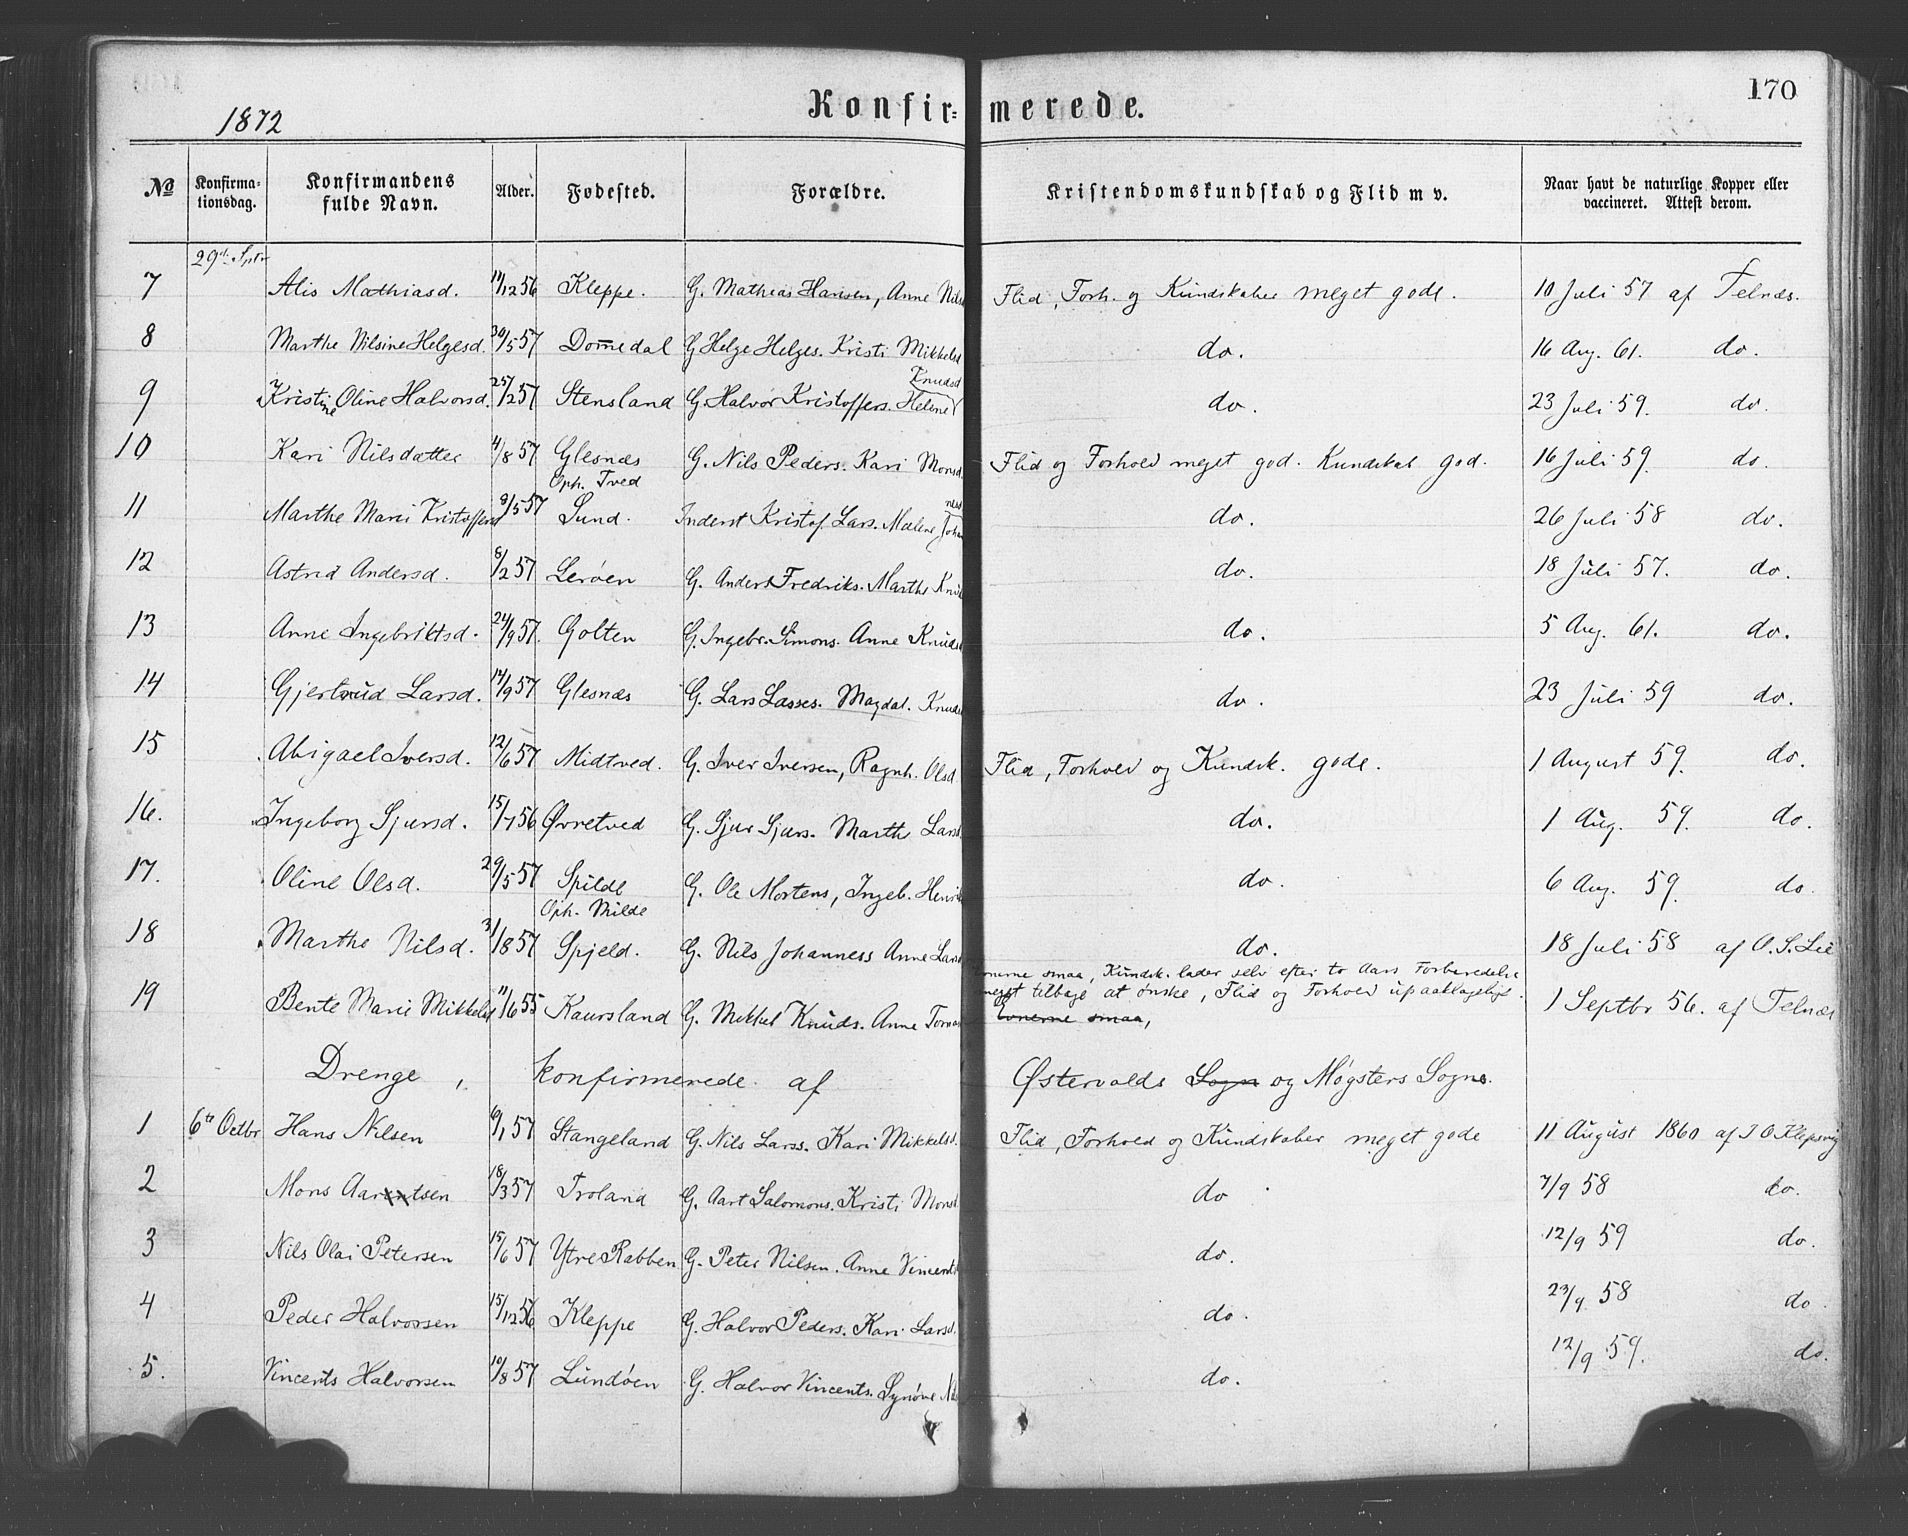 170
1872 Konfir- merede.
№ Konfirma-tionsdag. Konfirmandens fulde Navn. Alder. Fødested. Forældre. Kristendomskundskab og Flid m v. Naar havt de naturlige Kopper eller vaccineret. Attest derom.
29de Sptr
7 Alis Mathiasd. 11/12 56 Kleppe. G. Mathias Hansen, Anne Nils Flid, Forh. og Kundskaber meget gode. 10 Juli 57 af Telnæs.
8 Marthe Nilsine Helgesd. 30/5 57 Dommedal G Helge Helges. Kristi Mikkelsd do. 16 Aug. 61. do.
Knudsd
9 Kristine Oline Halvorsd. 25/2 57 Stensland G. Halvor Kristoffers. Helene do. 23 Juli 59. do.
10 Kari Nilsdatter 4/8 57 Glesnæs G. Nils Peders. Kari Monsd Flid og Forhold meget god. Kundskab god. 16 Juli 59. do.
Oph. Tved
11 Marthe Marie Kristoffersd 8/5 57 Sund. Inderst Kristof. Lars. Malene Johan nes do. 26 Juli 58 do.
12 Astrid Andersd. 8/2 57 Lerøen G. Anders Fredriks. Marthe do. 18 Juli 57. do.
13 Anne Ingebriktsd. 24/9 57. Golten G. Ingebr. Simons. Anne Knuds do. 5 Aug. 61. do.
14 Gjertrud Larsd. 14/9 57 Glesnæs G. Lars Lasses. Magdal. Knuds do. 23 Juli 59 do.
15 Abigael Iversd. 12/6 57 Midtved. G. Iver Iversen, Ragnh. Olsd Flid, Forhold og Kundsk. gode. 1 August 59. do.
16. Ingeborg Sjursd. 15/7 56 Øvretved G. Sjur Sjurs. Marthe Lars do. 1 Aug. 59. do.
17. Oline Olsd. 29/5 57 Spilde G. Ole Mortens, Ingeb. Henrik do. 6 Aug. 59. do
Oph. Milde
18 Marthe Nilsd. 31/8 57 Spjeld. G. Nils Johanness Anne Lars do. 18 Juli 58 af O. S. Lie
Evnerne smaa, Kundsk. lader selv efter to Aars Forberedelse
meget tilbage at ønske, Flid og Forhold upaaklageligt.
19 Bente Marie Mikkelsd 11/6 55 Kaursland G. Mikkel Knuds. Anne Evnerne smaa, 1 Septbr 56. af Telnæs
Drenge, konfirmerede af Østervolds Sogn og Møgsters Sogne.
1 6te Octbr Hans Nilsen 6/1 57 Stangeland G. Nils Larss. Kari Mikkelsd. Flid, Forhold og Kundskaber meget gode 11 August 1860 af I O Klepsvig
2 Mons Aarentsen 18/3 57 Troland G. Aart Salomons. Kristi Monsd. do 7/9 58 do.
3 Nils Olai Petersen 15/6 57 Ytre Rabben G. Peter Nilsen. Anne Vincents do. 12/9 59 do.
4 Peder Halvorsen 15/12 56 Kleppe G. Halvor Peders. Kari Larsd. do. 23/9. 58 do.
5. Vincents Halvorsen 10/8 57 Lundøen G. Halvor Vincents. Synøve do. 12/9 59. do.